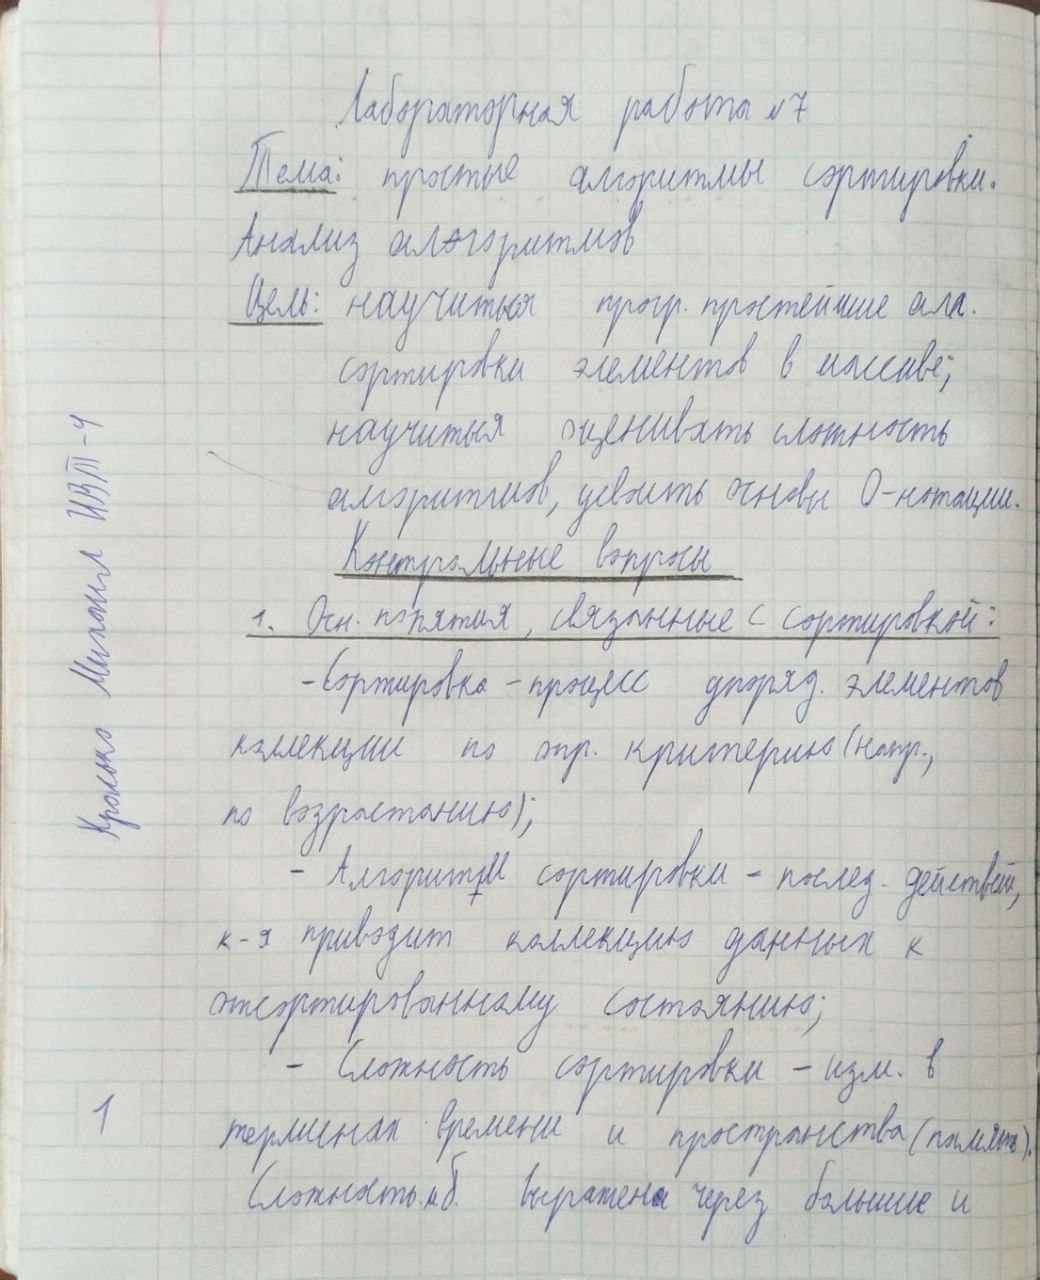 Лабораторная работа №7
Тема: простые алгоритмы сортировки.
Анализ алгоритмов
Цель: научиться прогр. простейшие алг.
сортировки элементов в массиве;
научиться оценивать сложность
алгоритмов, усвоить основы О-нотации.
Контрольные вопросы
1. Осн. понятия, связанные с сортировкой:
- Сортировка - процесс упоряд. элементов
коллекции по опр. критерию (напр.,
по возрастанию);
- Алгоритм сортировки - послед. действий,
к-я приводит коллекцию данных к
отсортированному состоянию;
- Сложность сортировки - изм. в
терминах времени и пространства (память).
Сложность м.б. выражена через большие и
Михаил ИВТ-4
1